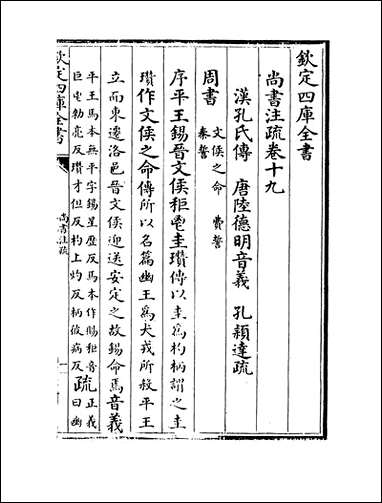 欽定四庫全書
尚書注疏卷十九
漢孔氏傳 唐陸德明音義 孔穎達疏
周書
文侯之命 費誓
秦誓
序平王錫晉文侯秬鬯圭瓚傳以圭為杓柄謂之圭
瓚作文侯之命傳所以名篇幽王為犬戎所殺平王
立而東遷洛邑晉文侯迎送安定之故錫命焉音義
平王馬本無平字錫星歷反馬本作賜秬音
巨鬯勑亮反瓚才但反杓上灼反柄彼病反
疏
正義
曰幽
欽定四庫全書
尚書注疏
一